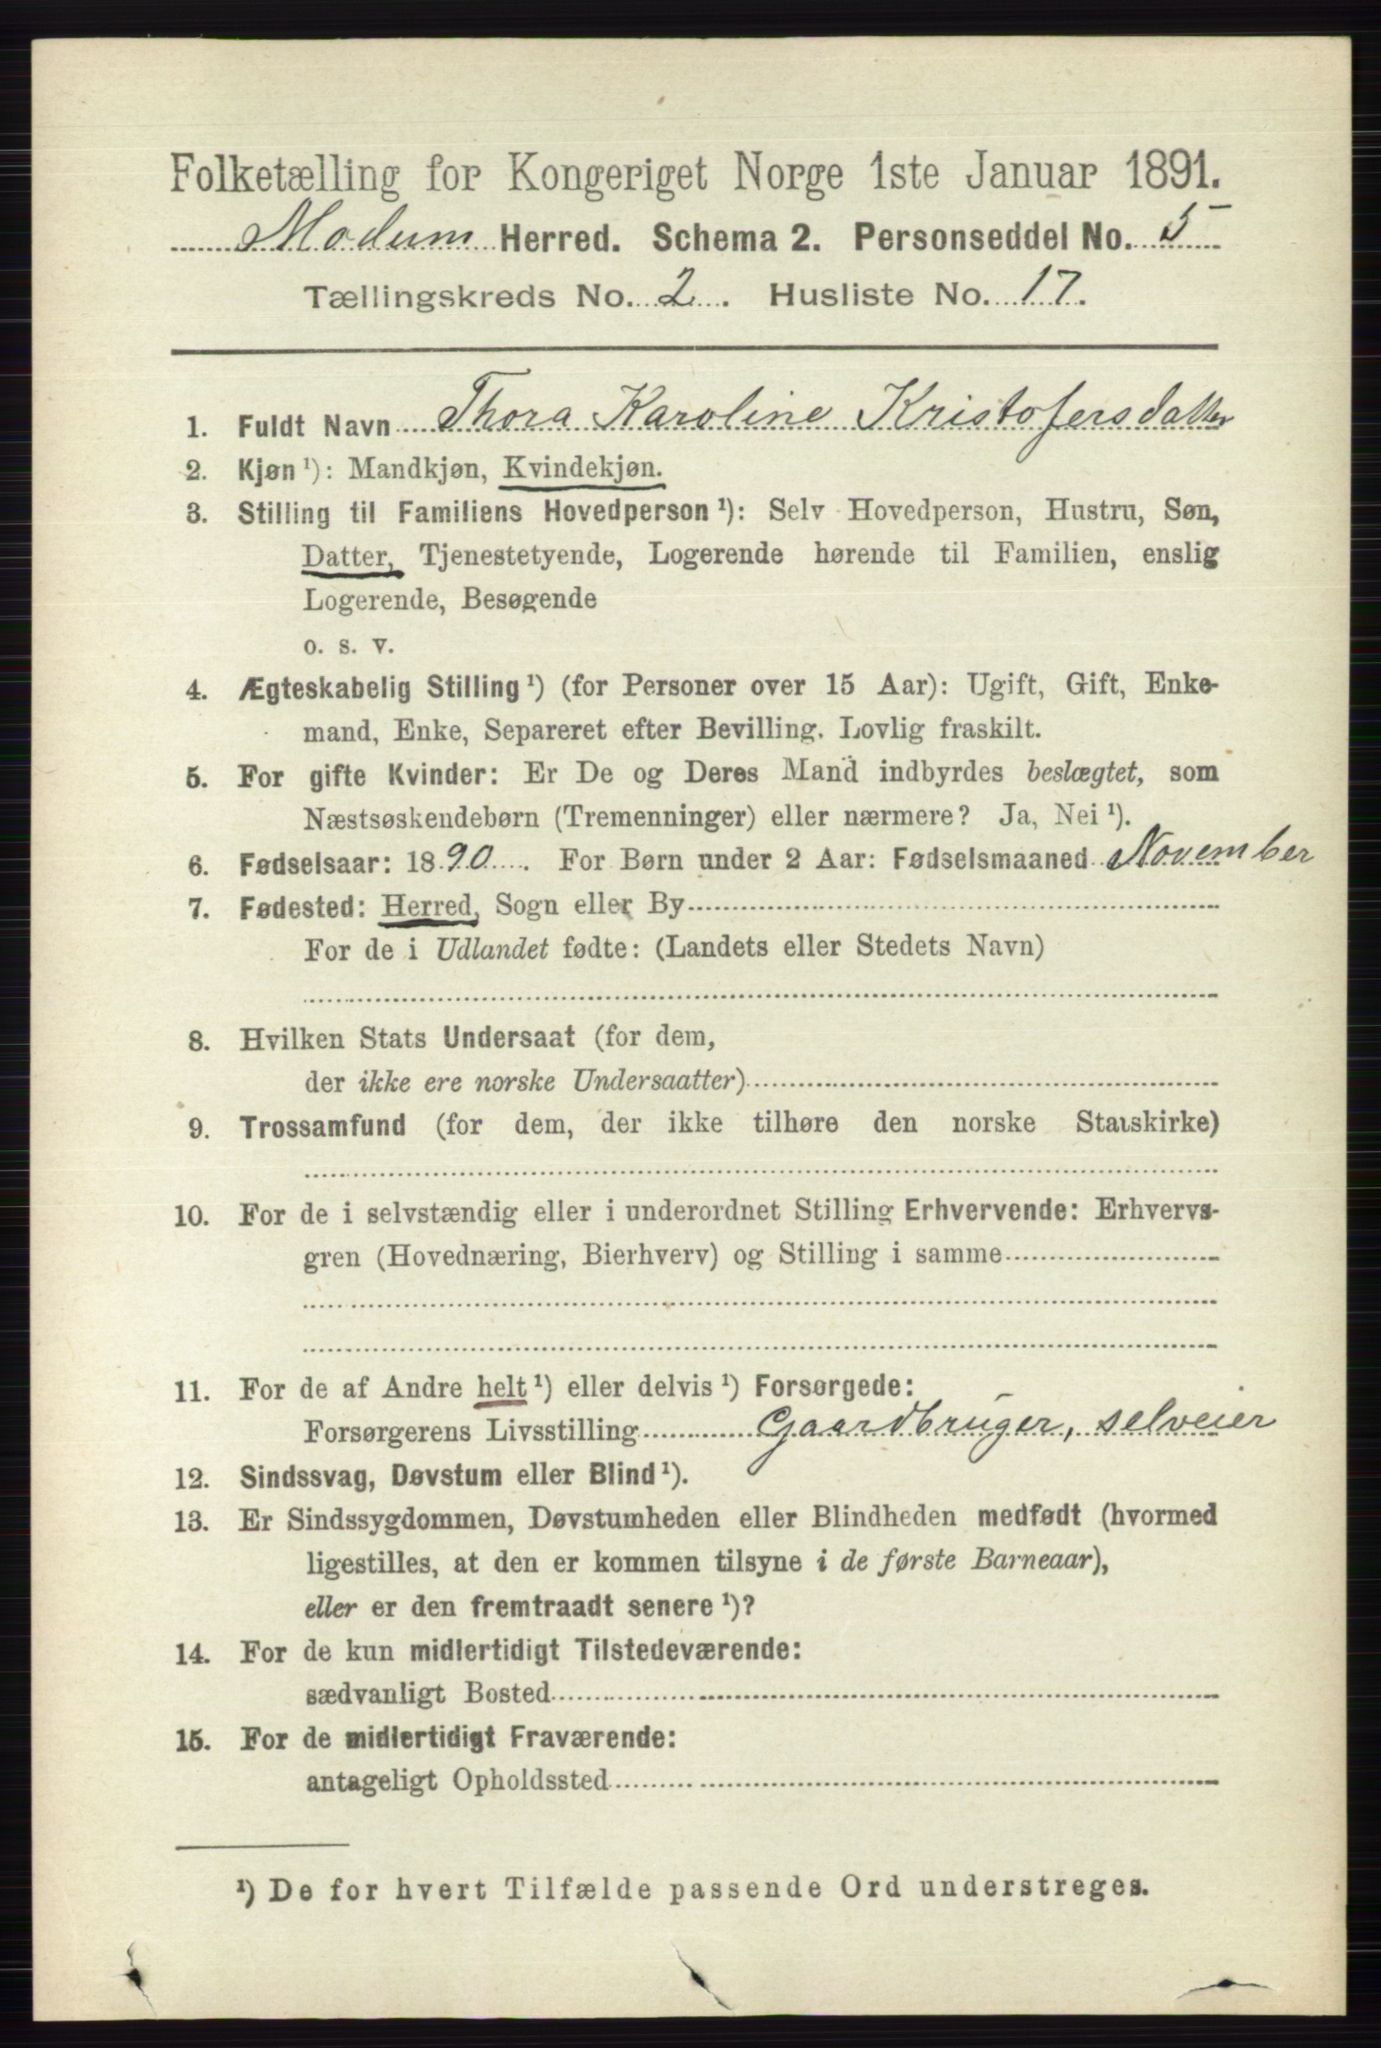 Folketælling for Kongeriget Norge 1ste Januar 1891.
Modum Herred. Schema 2. Personseddel No. 5
Tællingskreds No. 2. Husliste No. 17.
1. Fuldt Navn Thora Karoline Kristofersdatter
2. Kjøn ¹): Mandkjøn, Kvindekjøn.
3. Stilling til Familiens Hovedperson ¹): Selv Hovedperson, Hustru, Søn,
Datter, Tjenestetyende, Logerende hørende til Familien, enslig
Logerende, Besøgende
o. s. v.
4. Ægteskabelig Stilling ¹) (for Personer over 15 Aar): Ugift, Gift, Enke-
mand, Enke, Separeret efter Bevilling. Lovlig fraskilt.
5. For gifte Kvinder: Er De og Deres Mand indbyrdes beslægtet, som
Næstsøskendebørn (Tremenninger) eller nærmere? Ja, Nei ¹).
6. Fødselsaar: 1890. For Børn under 2 Aar: Fødselsmaaned November
7. Fødested: Herred, Sogn eller By
For de i Udlandet fødte: (Landets eller Stedets Navn)
8. Hvilken Stats Undersaat (for dem,
der ikke ere norske Undersaatter)
9. Trossamfund (for dem, der ikke tilhøre den norske Statskirke)
10. For de i selvstændig eller i underordnet Stilling Erhvervende: Erhvervs-
gren (Hovednæring, Bierhverv) og Stilling i samme
11. For de af Andre helt ¹) eller delvis ¹) Forsørgede:
Forsørgerens Livsstilling Gaardbruger, selveier
12. Sindssvag, Døvstum eller Blind ¹).
13. Er Sindssygdommen, Døvstumheden eller Blindheden medfødt (hvormed
ligestilles, at den er kommen tilsyne i de første Barneaar),
eller er den fremtraadt senere ¹)?
14. For de kun midlertidigt Tilstedeværende:
sædvanligt Bosted
15. For de midlertidigt Fraværende:
antageligt Opholdssted
¹) De for hvert Tilfælde passende Ord understreges.